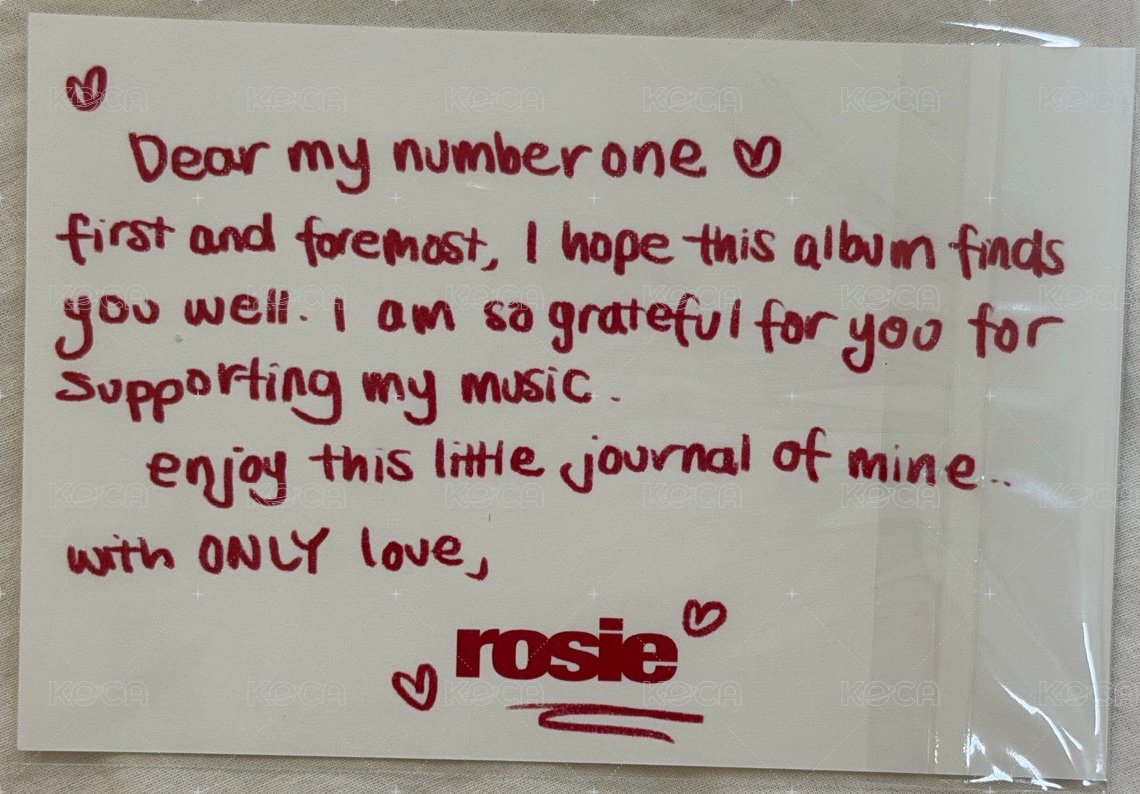 Dear my number one ♡
first and foremost, I hope this album finds
you well. I am so grateful for you for
supporting my music.
enjoy this little journal of mine..
with ONLY love,
rosie
KOCA